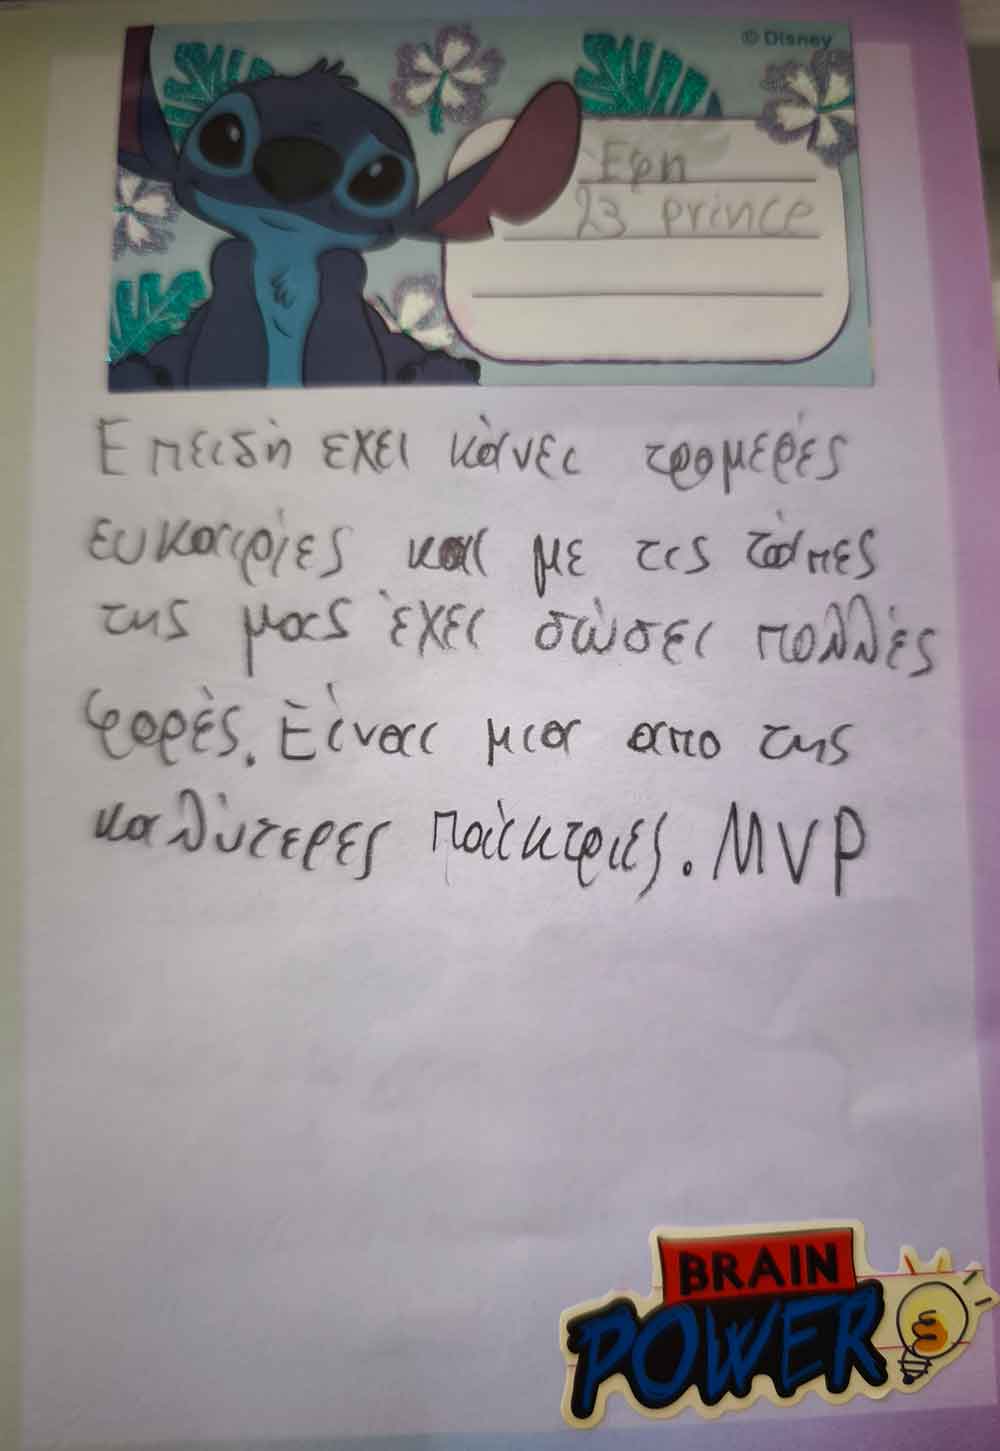 © Disney
Εφη
23 prince
Επειδή έχει κάνει τρομερές
ευκαιρίες και με τις τάπες
της μας έχει σώσει πολλές
φορές. Είναι μια απο της
καλύτερες παίκτριες. MVP
BRAIN
POWER